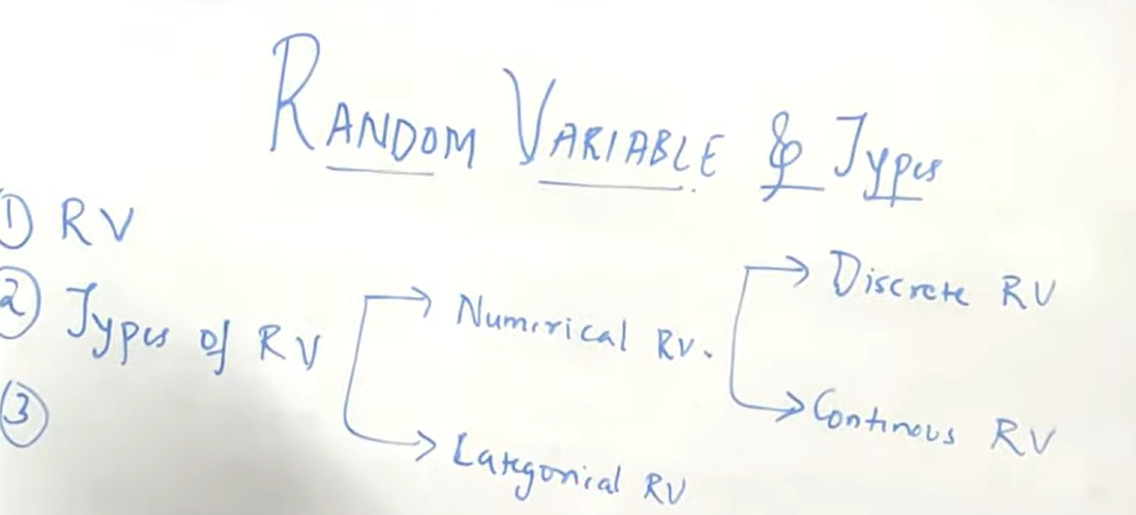 RANDOM VARIABLE & Types
① RV
② Types of RV → Numirical RV. → Discrete RV
→ Continous RV
→ Categorical RV
③